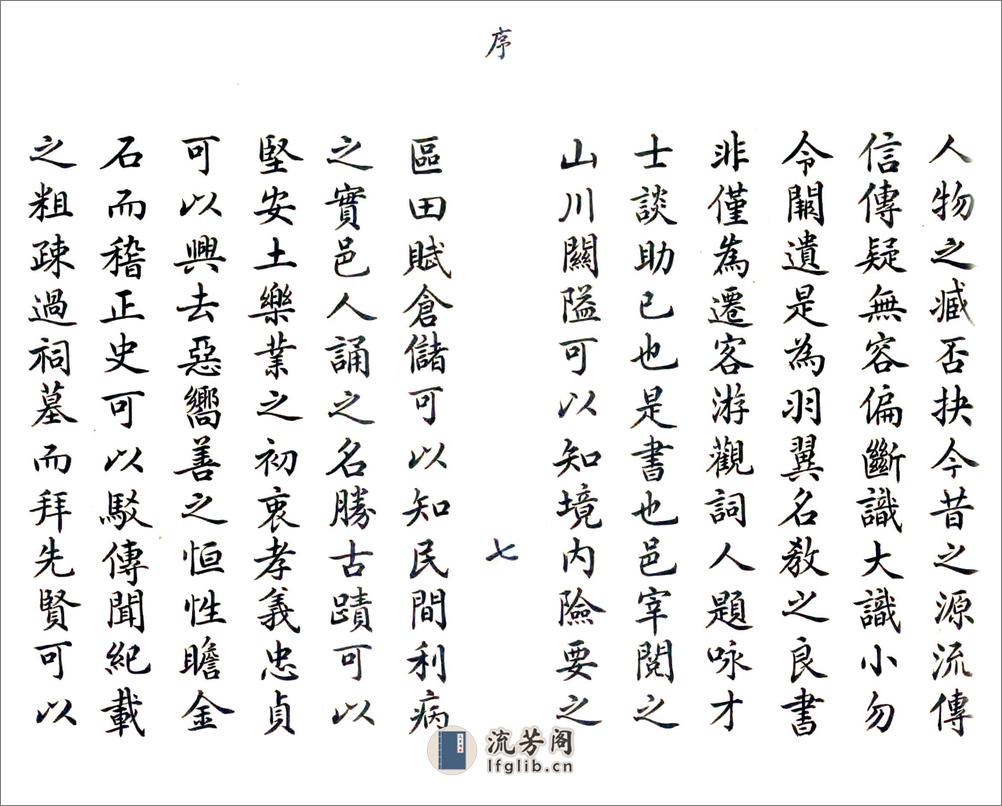 序
人物之臧否抉今昔之源流傳
信傳疑無容偏斷識大識小勿
令闕遺是為羽翼名教之良書
非僅為遷客游觀詞人題咏才
士談助已也是書也邑宰閱之
山川關隘可以知境内險要之
七
區田賦倉儲可以知民間利病
之實邑人誦之名勝古蹟可以
堅安土樂業之初衷孝義忠貞
可以興去惡嚮善之恒性瞻金
石而稽正史可以駁傳聞紀載
之粗疎過祠墓而拜先賢可以
流芳阁
lfglib.cn